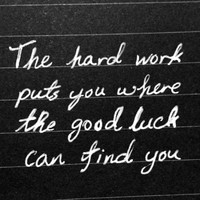 The hard work
puts you where
the good luck
can find you